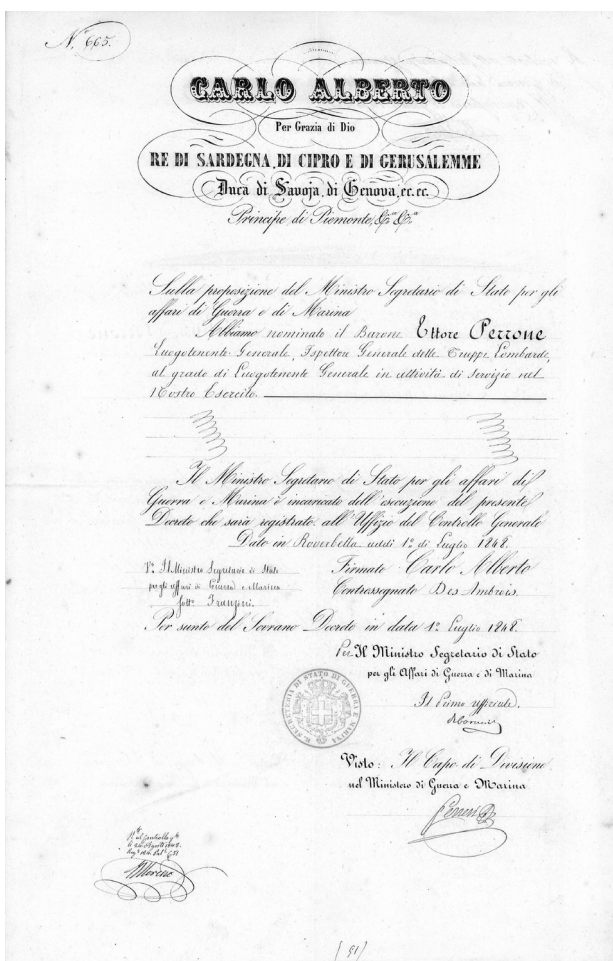 N. 665.
CARLO ALBERTO
Per Grazia di Dio
RE DI SARDEGNA, DI CIPRO E DI GERUSALEMME
Duca di Savoja, di Genova, ec. ec.
Principe di Piemonte, &.a &.a
Sulla proposizione del Ministro Segretario di Stato per gli
affari di Guerra e di Marina
Abbiamo nominato il Barone Ettore Perrone
Luogotenente Generale, Ispettore Generale delle Truppe Lombarde,
al grado di Luogotenente Generale in attività di servizio nel
Nostro Esercito.
Il Ministro Segretario di Stato per gli affari di
Guerra e Marina è incaricato dell'esecuzione del presente
Decreto che sarà registrato all'Uffizio del Controllo Generale
Dato in Roverbella addì 1º di Luglio 1848.
Vº Il Ministro Segretario di Stato
per gli affari di Guerra e Marina
sottº Franzini.
Firmato Carlo Alberto
Controssegnato Des Ambrois.
Per sunto del Sovrano Decreto in data 1º Luglio 1848.
Per Il Ministro Segretario di Stato
per gli Affari di Guerra e di Marina
Il Primo uffiziale
R. SEGRETERIA DI STATO DI GUERRA E MARINA
Visto: Il Capo di Divisione
nel Ministero di Guerra e Marina